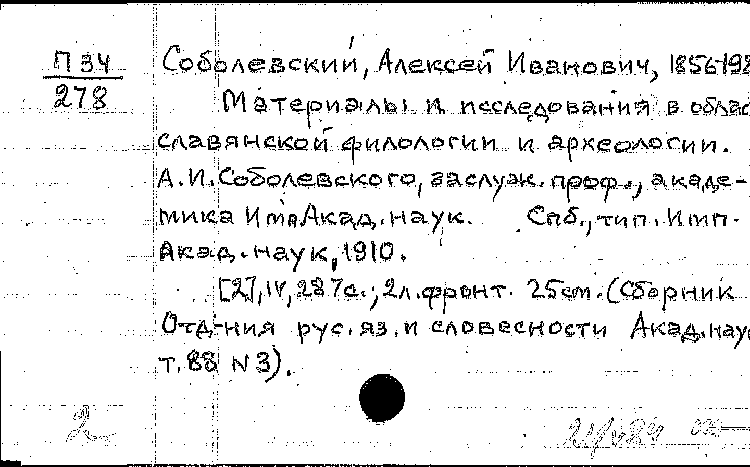 П 34
278
Соболевский, Алексей Иванович, 1856-19
Материалы и исследования в облас
славянской филологии и археологии.
А.И.Соболевского, заслуж.проф., акаде-
мика Имп.Акад.наук. Спб., тип. Имп.
Акад.наук, 1910.
[2], IV, 287с.; 2л.фронт. 25см. (Сборник
Отд-ния рус.яз. и словесности Акад.наук
т.88 N 3).
2